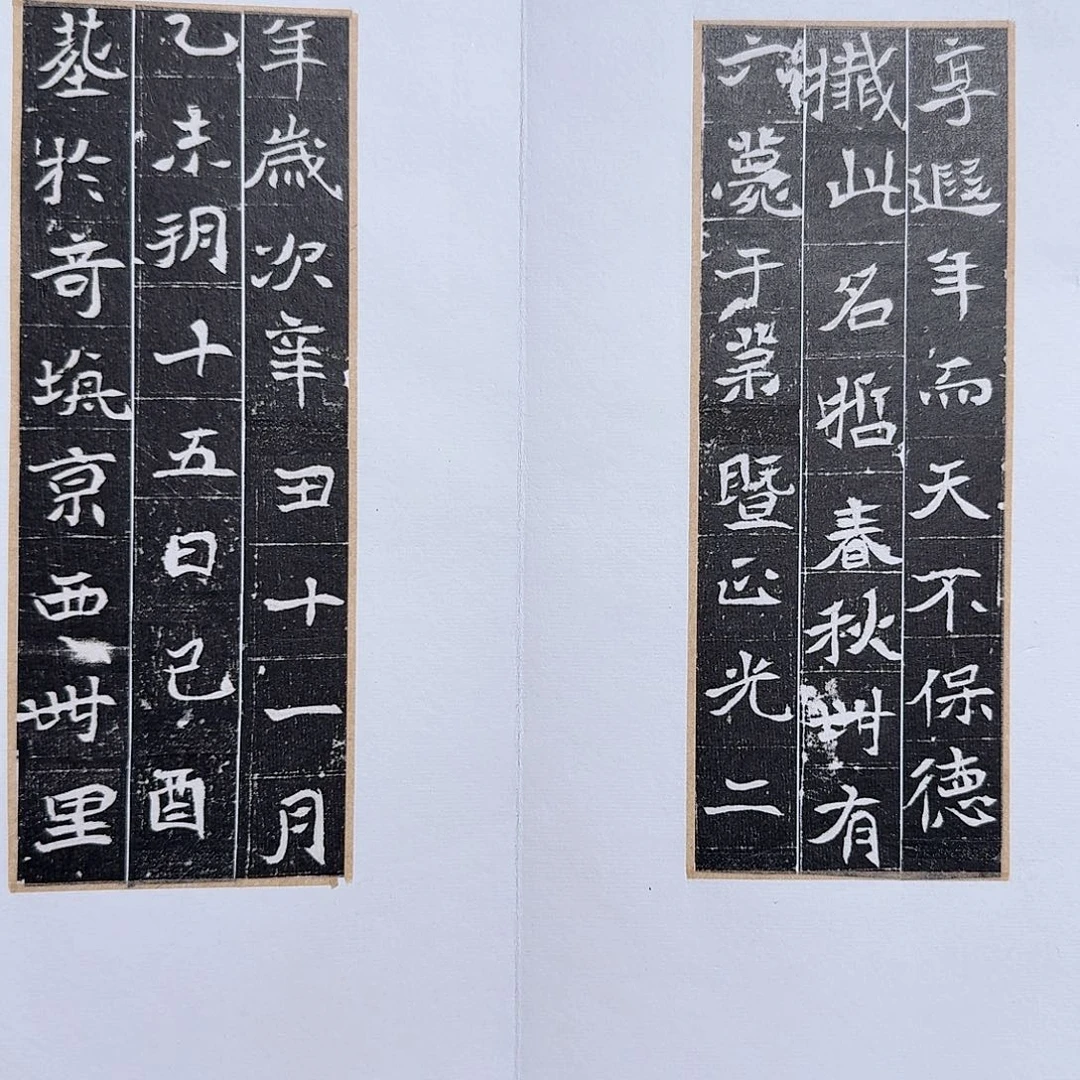 享遐年而天不保德
殲此名哲春秋卌有
六薨于業暨正光二
年歲次辛丑十一月
乙未朔十五日己酉
葬於竒填京西卌里